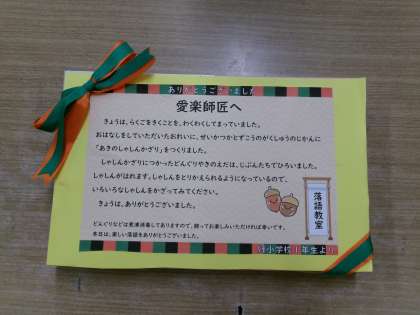 ありがとうございました
愛楽師匠へ
きょうは、らくごをきくことを、わくわくしてまっていました。
おはなしをしていただいたおれいに、せいかつかとずこうのがくしゅうのじかんに
「あきのしゃしんかざり」をつくりました。
しゃしんかざりにつかったどんぐりやきのえだは、じぶんたちでひろいました。
しゃしんがはれます。しゃしんをとりかえられるようになっているので、
いろいろなしゃしんをかざってみてください。
きょうは、ありがとうございました。
落語教室
どんぐりなどは煮沸消毒してありますので、飾ってお楽しみいただければ幸いです。
本日は、楽しい落語をありがとうございました。
小学校1年生より